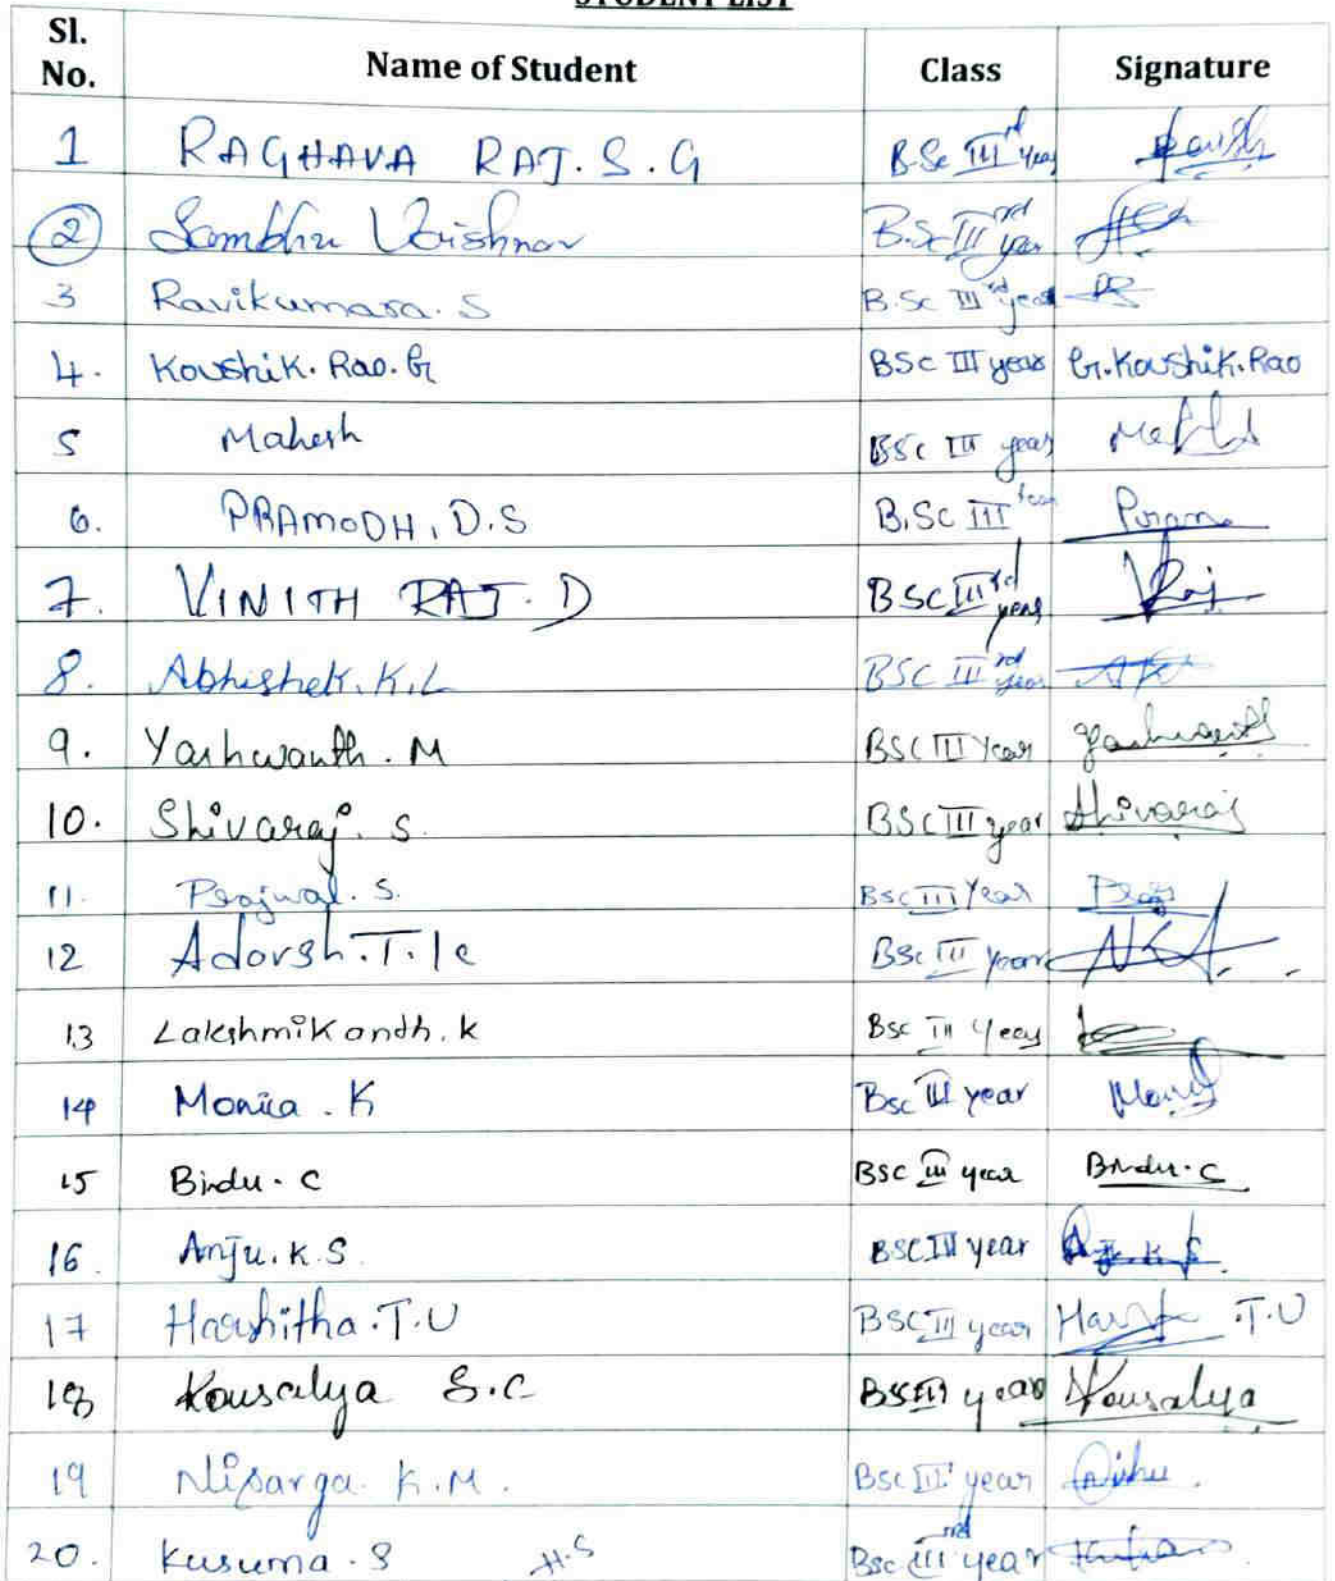 STUDENT LIST
Sl. No. Name of Student Class Signature
1 RAGHAVA RAJ. S. G B.Sc III rd year
2 Sambhu Vaishnav B.Sc III rd year
3 Ravikumara. S B.Sc III rd year
4. Koushik. Rao. G BSc III year G. Koushik. Rao
5 Mahesh BSc III year
6. PRAMODH, D.S B.Sc III Year
7. VINITH RAJ. D BSC III rd year VRaj
8. Abhishek. K.L BSC III rd year
9. Yashwanth. M BSC III Year Yashwanth
10. Shivaraj. S. BSC III year Shivaraj
11. Prajwal. S. BSC III Year Praj
12 Adarsh. T. K BSC III year
13 Lakshmikandh. k Bsc III Year
14 Monica. K Bsc III year
15 Bindu. C BSC III year Bindu. C
16. Anju. K. S. BSC III year Anju. K. S.
17 Harshitha. T. U BSC III year T. U
18 Kousalya S.C BSC III year Kousalya
19 Nisarga. K. M. Bsc III year Nishu.
20. Kusuma. S H.S Bsc III rd year